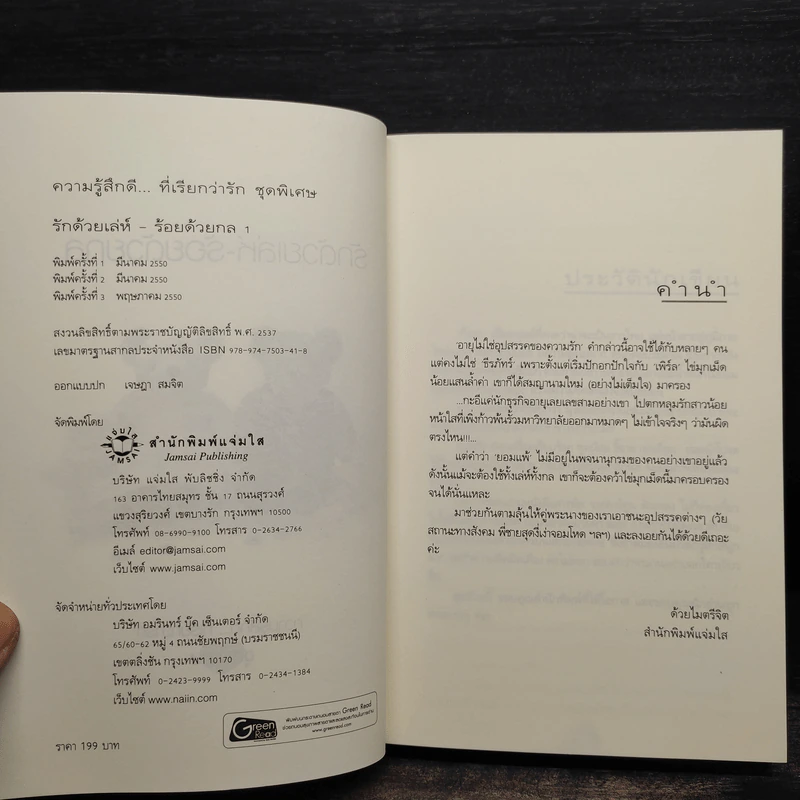 ความรู้สึกดี... ที่เรียกว่ารัก ชุดพิเศษ
รักด้วยเล่ห์ - ร้อยด้วยกล 1
พิมพ์ครั้งที่ 1 มีนาคม 2550
พิมพ์ครั้งที่ 2 มีนาคม 2550
พิมพ์ครั้งที่ 3 พฤษภาคม 2550
สงวนลิขสิทธิ์ตามพระราชบัญญัติลิขสิทธิ์ พ.ศ. 2537
เลขมาตรฐานสากลประจำหนังสือ ISBN 978-974-7503-41-8
ออกแบบปก เจษฎา สมจิต
จัดพิมพ์โดย
แจ่มใส
JAMSAI
สำนักพิมพ์แจ่มใส
Jamsai Publishing
บริษัท แจ่มใส พับลิชชิ่ง จำกัด
163 อาคารไทยสมุทร ชั้น 17 ถนนสุรวงศ์
แขวงสุริยวงศ์ เขตบางรัก กรุงเทพฯ 10500
โทรศัพท์ 08-6990-9100 โทรสาร 0-2634-2766
อีเมล์ editor@jamsai.com
เว็บไซต์ www.jamsai.com
จัดจำหน่ายทั่วประเทศโดย
บริษัท อมรินทร์ บุ๊ค เซ็นเตอร์ จำกัด
65/60-62 หมู่ 4 ถนนชัยพฤกษ์ (บรมราชชนนี)
เขตตลิ่งชัน กรุงเทพฯ 10170
โทรศัพท์ 0-2423-9999 โทรสาร 0-2434-1384
เว็บไซต์ www.naiin.com
Green Read
พิมพ์บนกระดาษถนอมสายตา Green Read
www.greenread.com
ราคา 199 บาท
คำนำ
'อายุไม่ใช่อุปสรรคของความรัก' คำกล่าวนี้อาจใช้ได้กับหลายๆ คน
แต่คงไม่ใช่ 'ธีรภัทร์' เพราะตั้งแต่เริ่มปักอกปักใจกับ 'เพิร์ล' ไข่มุกเม็ด
น้อยแสนล้ำค่า เขาก็ได้สมญานามใหม่ (อย่างไม่เต็มใจ) มาครอง
...กะอีแค่นักธุรกิจอายุเลยเลขสามอย่างเขา ไปตกหลุมรักสาวน้อย
หน้าใสที่เพิ่งก้าวพ้นรั้วมหาวิทยาลัยออกมาหมาดๆ ไม่เข้าใจจริงๆ ว่ามันผิด
ตรงไหน!!!...
แต่คำว่า 'ยอมแพ้' ไม่มีอยู่ในพจนานุกรมของคนอย่างเขาอยู่แล้ว
ดังนั้นแม้จะต้องใช้ทั้งเล่ห์ทั้งกล เขาก็จะต้องคว้าไข่มุกเม็ดนี้มาครอบครอง
จนได้นั่นแหละ
มาช่วยกันตามลุ้นให้คู่พระนางของเราเอาชนะอุปสรรคต่างๆ (วัย
สถานะทางสังคม พี่ชายสุดงี่เง่าจอมโหด ฯลฯ) และลงเอยกันได้ด้วยดีเถอะ
ค่ะ
ด้วยไมตรีจิต
สำนักพิมพ์แจ่มใส